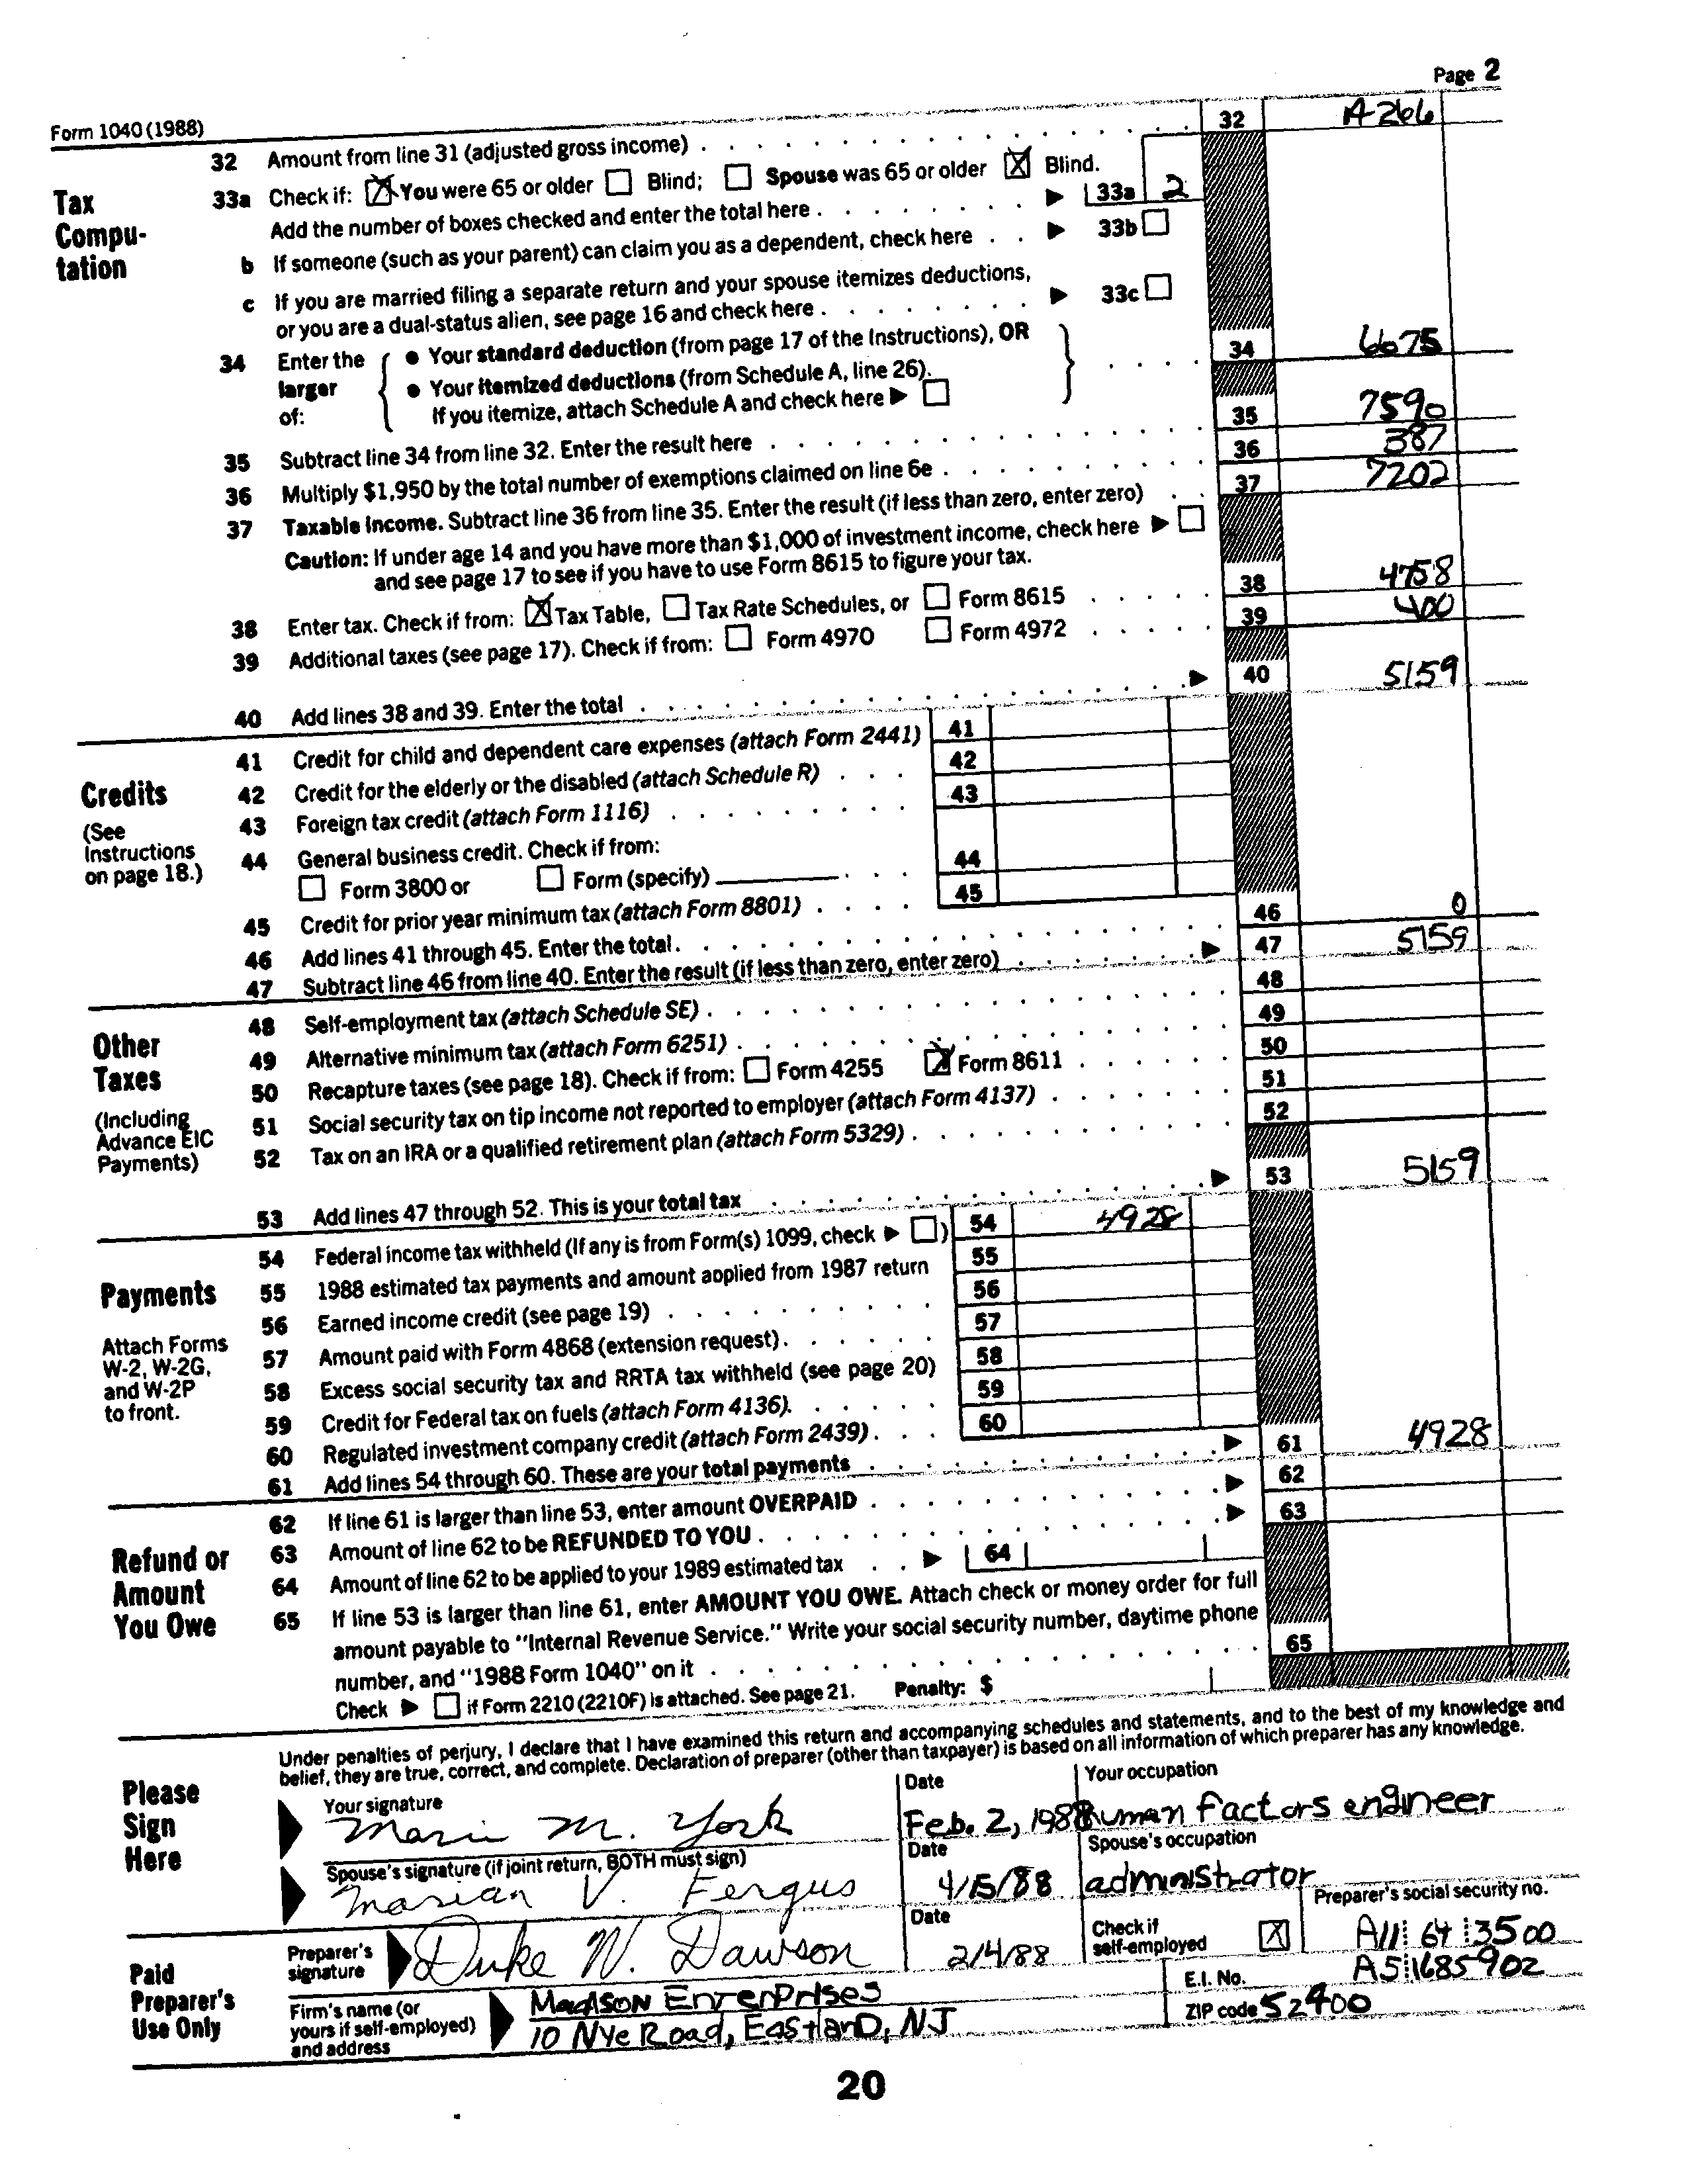 Page 2
Form 1040 (1988)
32 Amount from line 31 (adjusted gross income) 32 A266
Tax Computation
33a Check if: X You were 65 or older Blind; Spouse was 65 or older X Blind.
Add the number of boxes checked and enter the total here 33a 2
b If someone (such as your parent) can claim you as a dependent, check here 33b
c If you are married filing a separate return and your spouse itemizes deductions,
or you are a dual-status alien, see page 16 and check here 33c
34 Enter the larger of:
• Your standard deduction (from page 17 of the Instructions), OR
• Your itemized deductions (from Schedule A, line 26).
If you itemize, attach Schedule A and check here
34 6675
35 Subtract line 34 from line 32. Enter the result here 35 7590
36 Multiply $1,950 by the total number of exemptions claimed on line 6e 36 387
37 Taxable income. Subtract line 36 from line 35. Enter the result (if less than zero, enter zero) 37 7202
Caution: If under age 14 and you have more than $1,000 of investment income, check here
and see page 17 to see if you have to use Form 8615 to figure your tax.
38 Enter tax. Check if from: X Tax Table, Tax Rate Schedules, or Form 8615 38 4758
39 Additional taxes (see page 17). Check if from: Form 4970 Form 4972 39 400
40 Add lines 38 and 39. Enter the total 40 5159
Credits
(See Instructions on page 18.)
41 Credit for child and dependent care expenses (attach Form 2441) 41
42 Credit for the elderly or the disabled (attach Schedule R) 42
43 Foreign tax credit (attach Form 1116) 43
44 General business credit. Check if from:
Form 3800 or Form (specify) 44
45 Credit for prior year minimum tax (attach Form 8801) 45
46 Add lines 41 through 45. Enter the total. 46 0
47 Subtract line 46 from line 40. Enter the result (if less than zero, enter zero) 47 5159
Other Taxes
(Including Advance EIC Payments)
48 Self-employment tax (attach Schedule SE) 48
49 Alternative minimum tax (attach Form 6251) 49
50 Recapture taxes (see page 18). Check if from: Form 4255 X Form 8611 50
51 Social security tax on tip income not reported to employer (attach Form 4137) 51
52 Tax on an IRA or a qualified retirement plan (attach Form 5329) 52
53 Add lines 47 through 52. This is your total tax 53 5159
Payments
Attach Forms W-2, W-2G, and W-2P to front.
54 Federal income tax withheld (If any is from Form(s) 1099, check ) 54 4928
55 1988 estimated tax payments and amount applied from 1987 return 55
56 Earned income credit (see page 19) 56
57 Amount paid with Form 4868 (extension request) 57
58 Excess social security tax and RRTA tax withheld (see page 20) 58
59 Credit for Federal tax on fuels (attach Form 4136). 59
60 Regulated investment company credit (attach Form 2439) 60
61 Add lines 54 through 60. These are your total payments 61 4928
Refund or Amount You Owe
62 If line 61 is larger than line 53, enter amount OVERPAID 62
63 Amount of line 62 to be REFUNDED TO YOU 63
64 Amount of line 62 to be applied to your 1989 estimated tax 64
65 If line 53 is larger than line 61, enter AMOUNT YOU OWE. Attach check or money order for full
amount payable to "Internal Revenue Service." Write your social security number, daytime phone
number, and "1988 Form 1040" on it 65
Check if Form 2210 (2210F) is attached. See page 21. Penalty: $
Please Sign Here
Under penalties of perjury, I declare that I have examined this return and accompanying schedules and statements, and to the best of my knowledge and
belief, they are true, correct, and complete. Declaration of preparer (other than taxpayer) is based on all information of which preparer has any knowledge.
Your signature Date Your occupation
Marie M. York Feb. 2, 1988 human factors engineer
Spouse's signature (if joint return, BOTH must sign) Date Spouse's occupation
Marian V. Fergus 4/15/88 administrator
Paid Preparer's Use Only
Preparer's signature Date Check if self-employed X Preparer's social security no.
Duke W. Dawson 2/4/88 A11 64 3500
Firm's name (or yours if self-employed) and address
Madison Enterprises E.I. No. A5 1685902
10 Nye Road, Eastland, NJ ZIP code 52400
20